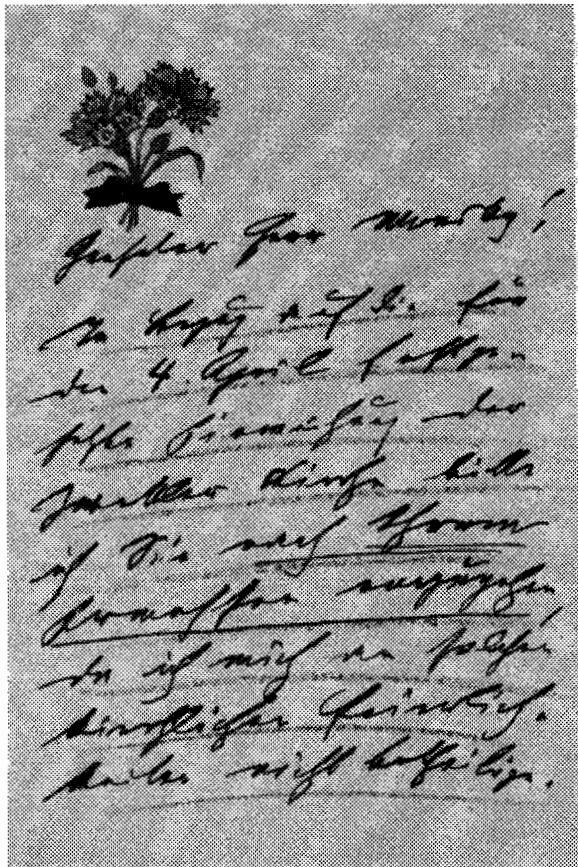 Geehrter Herr
In Bezug auf die für
den 4. April festge-
setzte Einweihung der
Zwettler Kirche bitte
ich Sie nach Ihrem
Ermessen vorzugehen,
da ich mich an solchen
kirchlichen Feierlich-
keiten nicht betheilige.